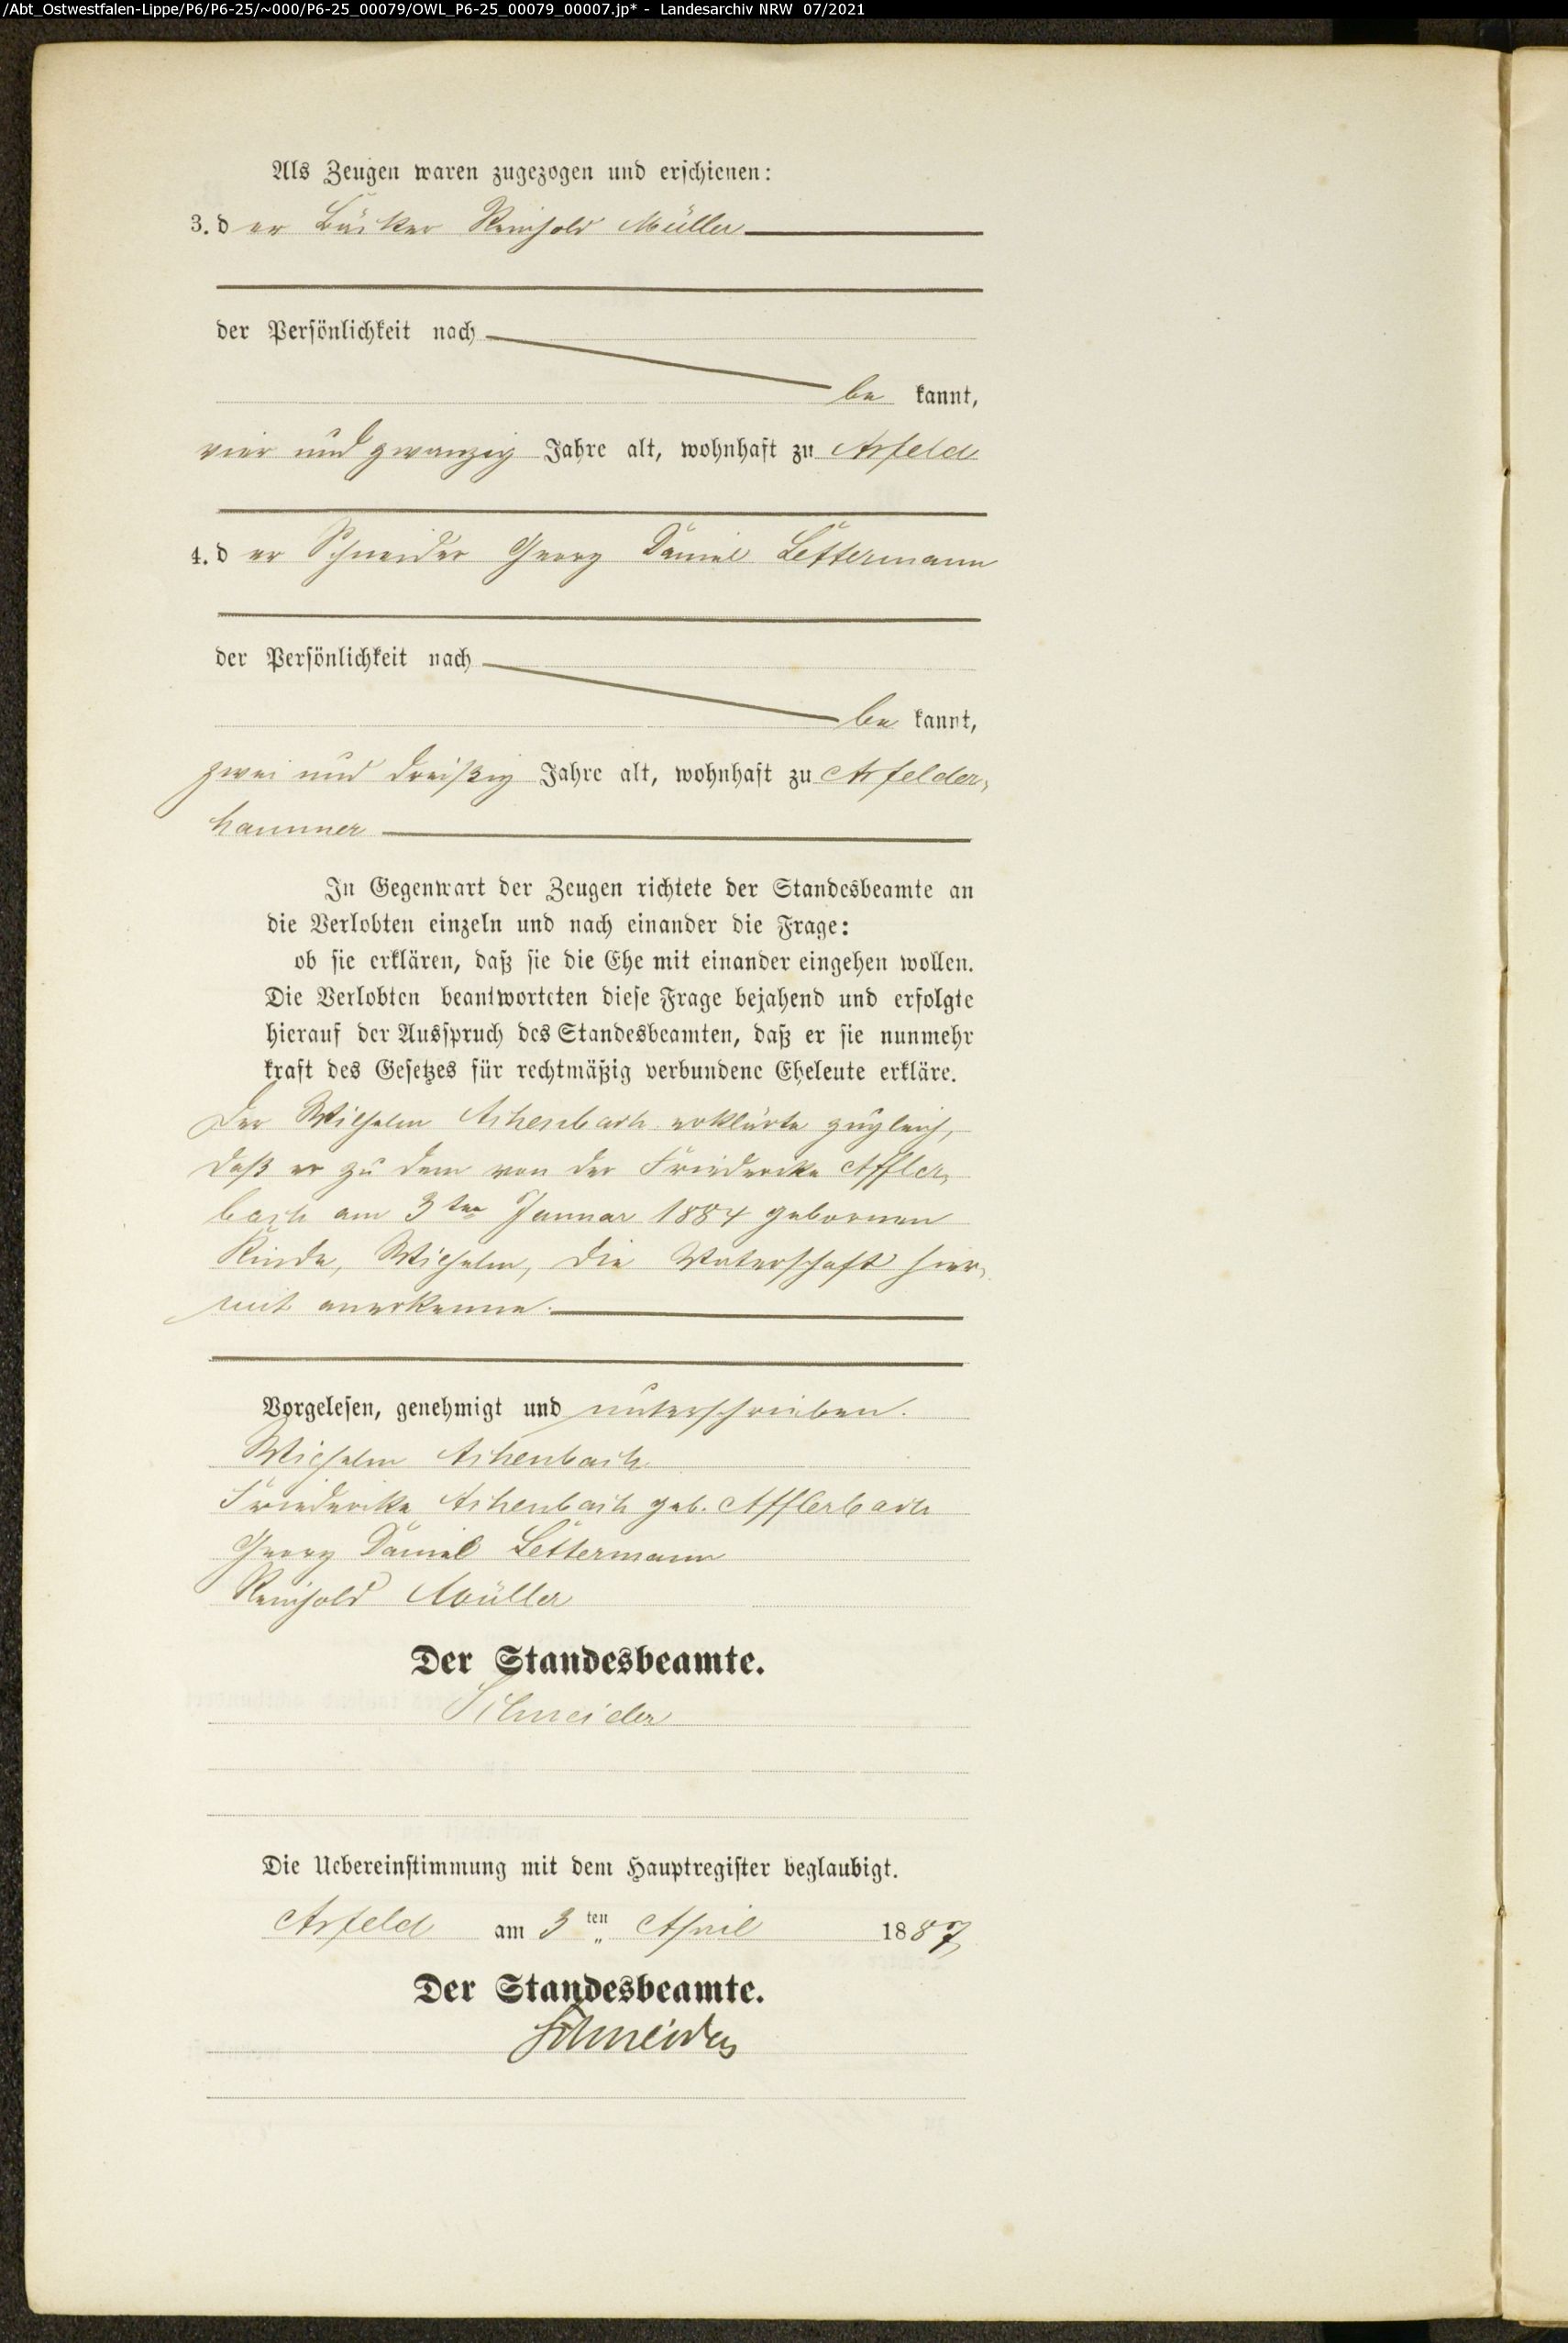 /Abt_Ostwestfalen-Lippe/P6/P6-25/~000/P6-25_00079/OWL_P6-25_00079_00007.jp* - Landesarchiv NRW 07/2021
Als Zeugen waren zugezogen und erschienen:
3. der Bäcker Reinhold Müller
der Persönlichkeit nach
be kannt,
vier und zwanzig Jahre alt, wohnhaft zu Arfeld
4. der Schneider Georg Daniel Lettermann
der Persönlichkeit nach
be kannt,
zwei und dreißig Jahre alt, wohnhaft zu Arfelder,
hammer
In Gegenwart der Zeugen richtete der Standesbeamte an
die Verlobten einzeln und nach einander die Frage:
ob sie erklären, daß sie die Ehe mit einander eingehen wollen.
Die Verlobten beantworteten diese Frage bejahend und erfolgte
hierauf der Ausspruch des Standesbeamten, daß er sie nunmehr
kraft des Gesetzes für rechtmäßig verbundene Eheleute erkläre.
Der Wilhelm Achenbach erklärte zugleich,
daß er zu dem von der Friederike Affler,
bach am 3ten Januar 1884 geborenen
Kinde, Wilhelm, die Vaterschaft hier,
mit anerkenne.
Vorgelesen, genehmigt und unterschrieben.
Wilhelm Achenbach
Friederike Achenbach geb. Afflerbach
Georg Daniel Lettermann
Reinhold Müller
Der Standesbeamte.
Schneider
Die Uebereinstimmung mit dem Hauptregister beglaubigt.
Arfeld am 3 ten April 1887
Der Standesbeamte.
Schneider